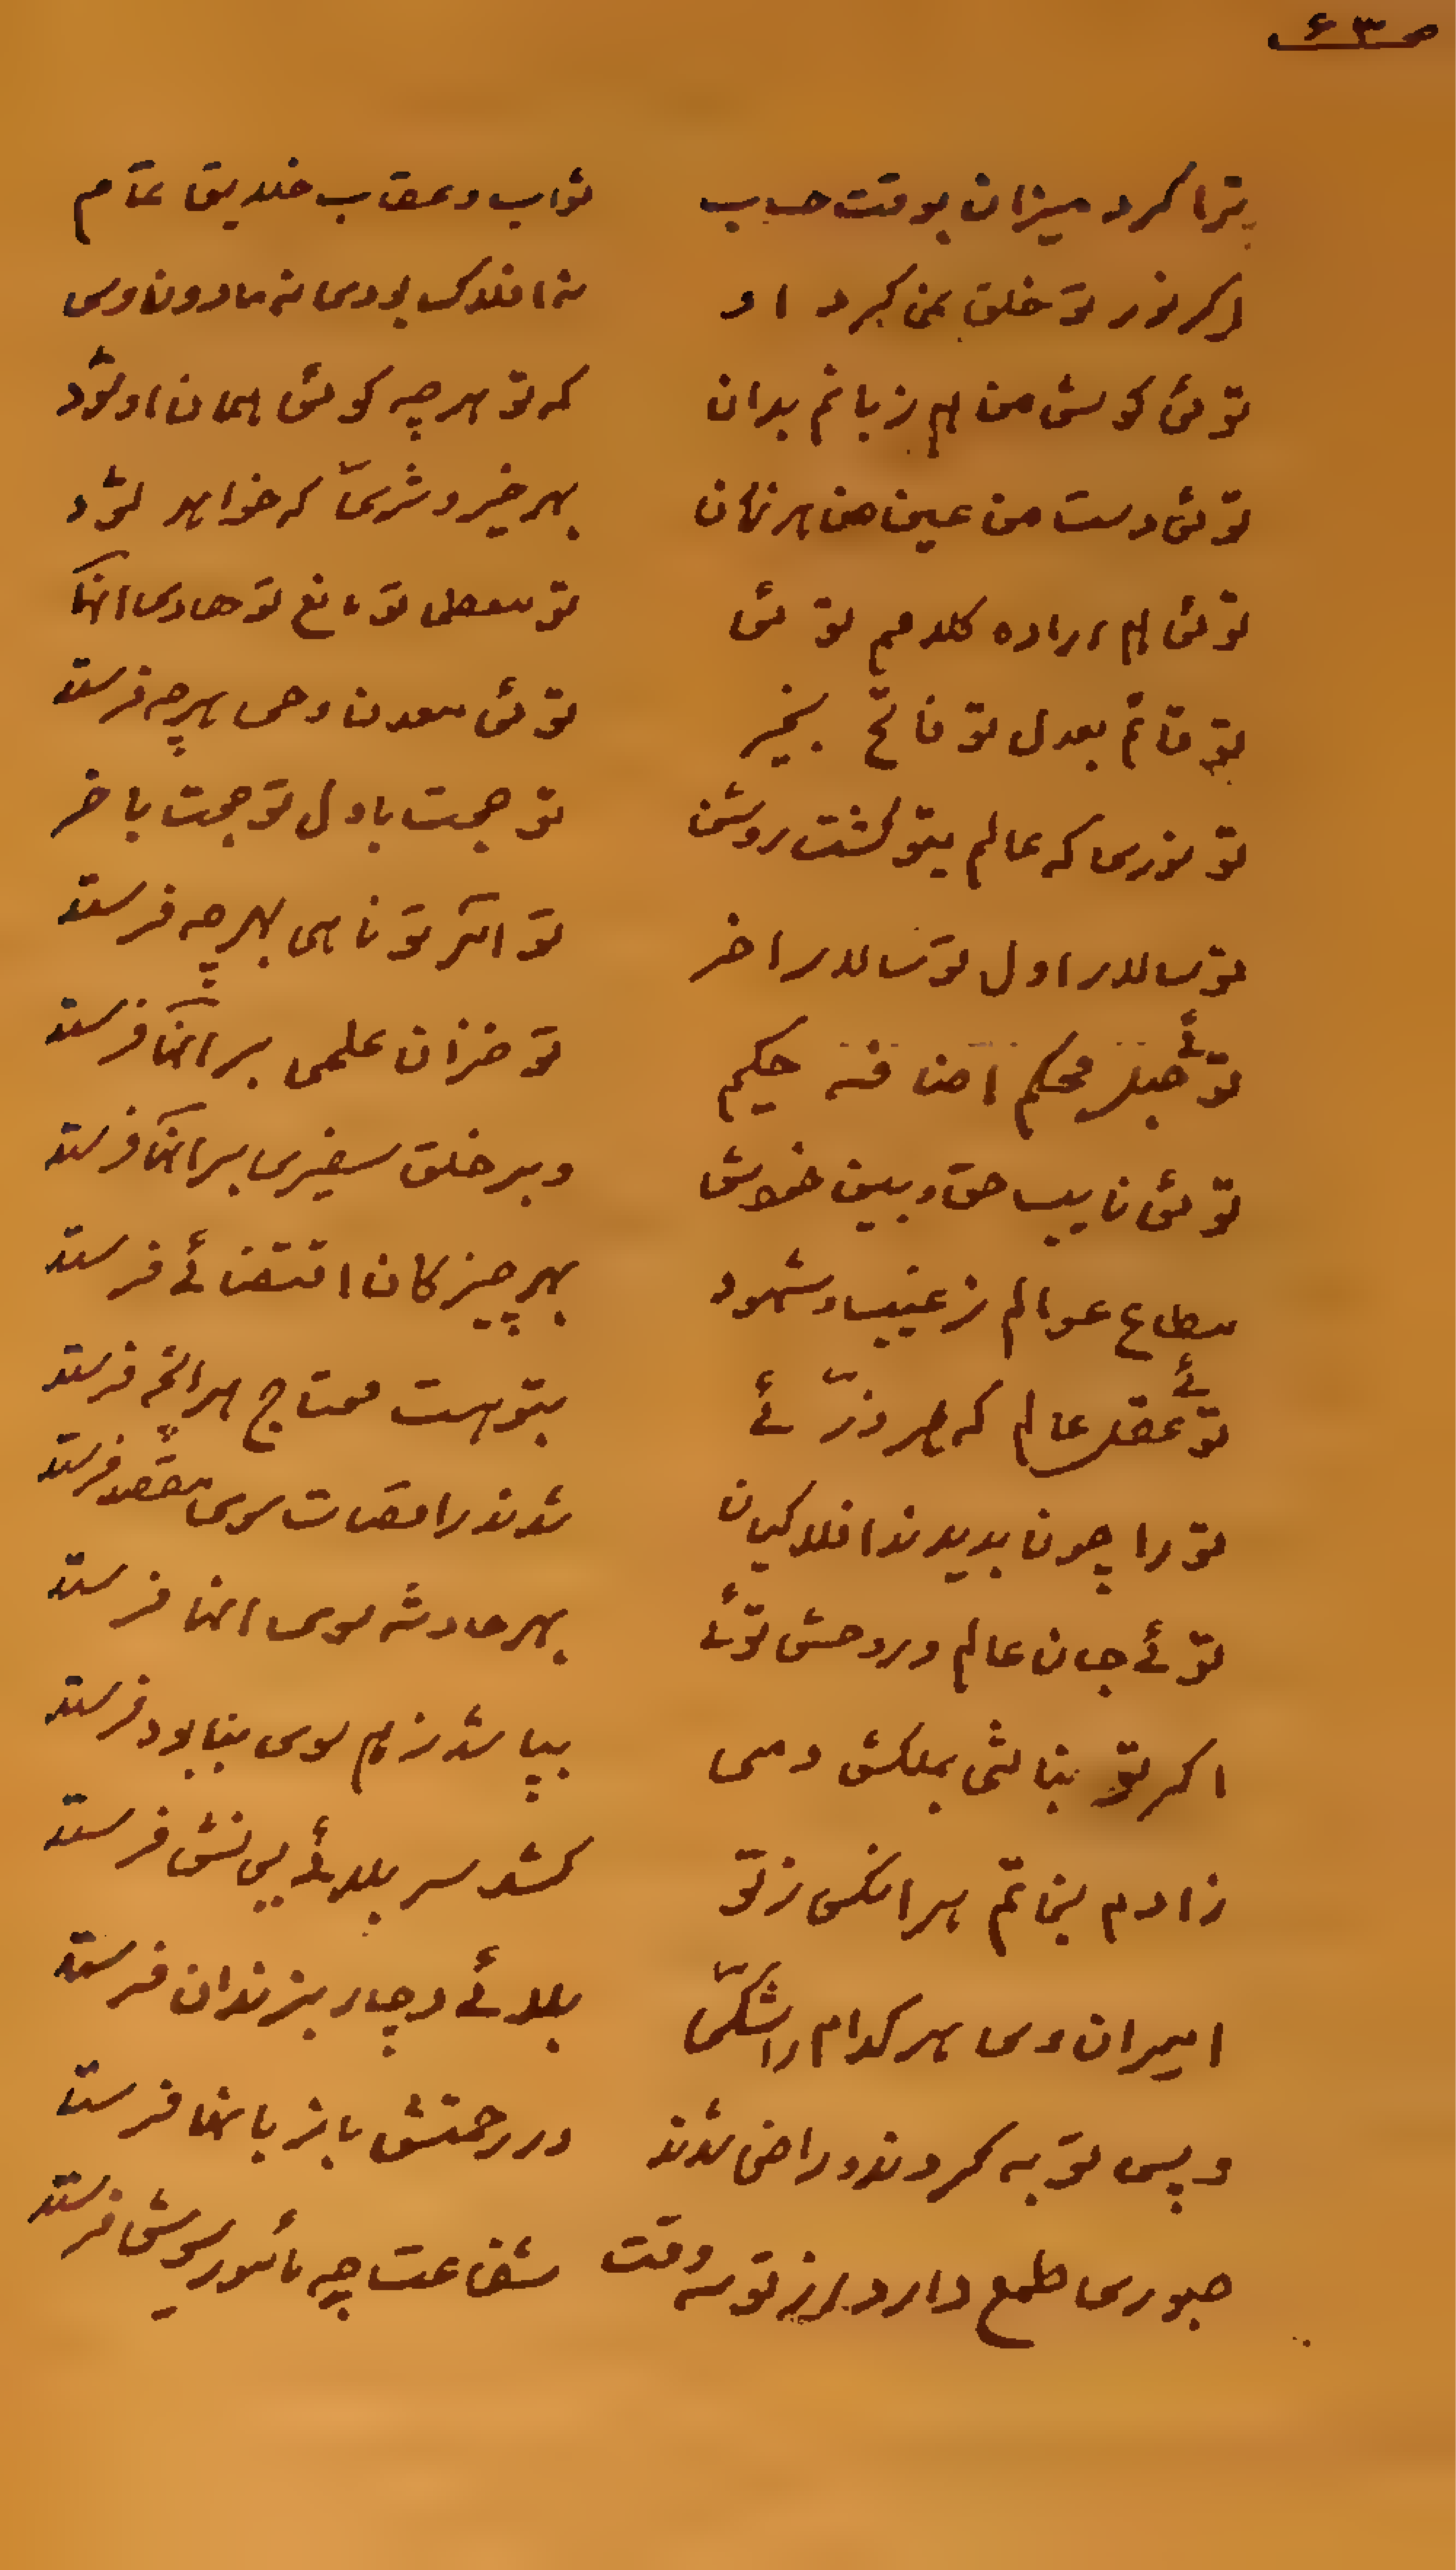 ص ۶۳
ترا کرد میزان بوقت حساب ثواب و عقاب خلایق تمام
اکر نور تو خلق نمی کرد او نه افلاک بودی نه مادون وی
توئی کوش من هم زبانم بدان که تو هرچه کوئی همان او شود
توئی دست من عین من هر زمان بهر خیر و شری که خواهد شود
توئی هم اراده کلامم توئی تو معطی تو مانع تو هادی آنها
تو قائم بعدل تو فاتح بخیر توئی معدن وحی هرچه فرستد
تو نوری که عالم بتو کشت روشن تو حجت باول تو حجت باخر
تو سالار اول تو سالار اخر تو امر تو ناهی بهرچه فرستد
توئے حبل محکم حکیم تو خزان علمی بر آنها فرستد
توئی نایب حق و بین خلایق و بر خلق سفیری بر آنها فرستد
مطاع عوالم ز غیب و شهود بهر چیز کان اقتضائے فرستد
توئے عقل عالم که هر ذرّئے بتو هست محتاج هر آنچه فرستد
تو را چون بدیدند افلاکیان شدند سوی مقصد فرستد
توئے جان عالم و روحش توئے بهر حادثه سوی آنها فرستد
اکر تو نباشی بملکش دمی بپاشد ز هم سوی فرستد
ز ادم بخاتم هر انکس ز تو کشد سر بلائے پی نش فرستد
امیران وی هر کدام را شکی بلائے دچار بزندان فرستد
و پس توبه کردند و راضی شدند در رحمتش باز بآنها فرستد
صبوری طمع دارد از تو سه وقت شفاعت چه مأمور سویش فرستد